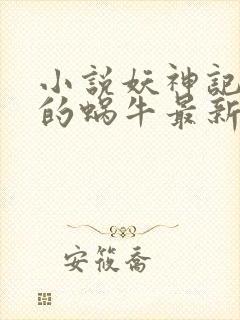 小説妖神記
的蝸牛最新
安筱喬